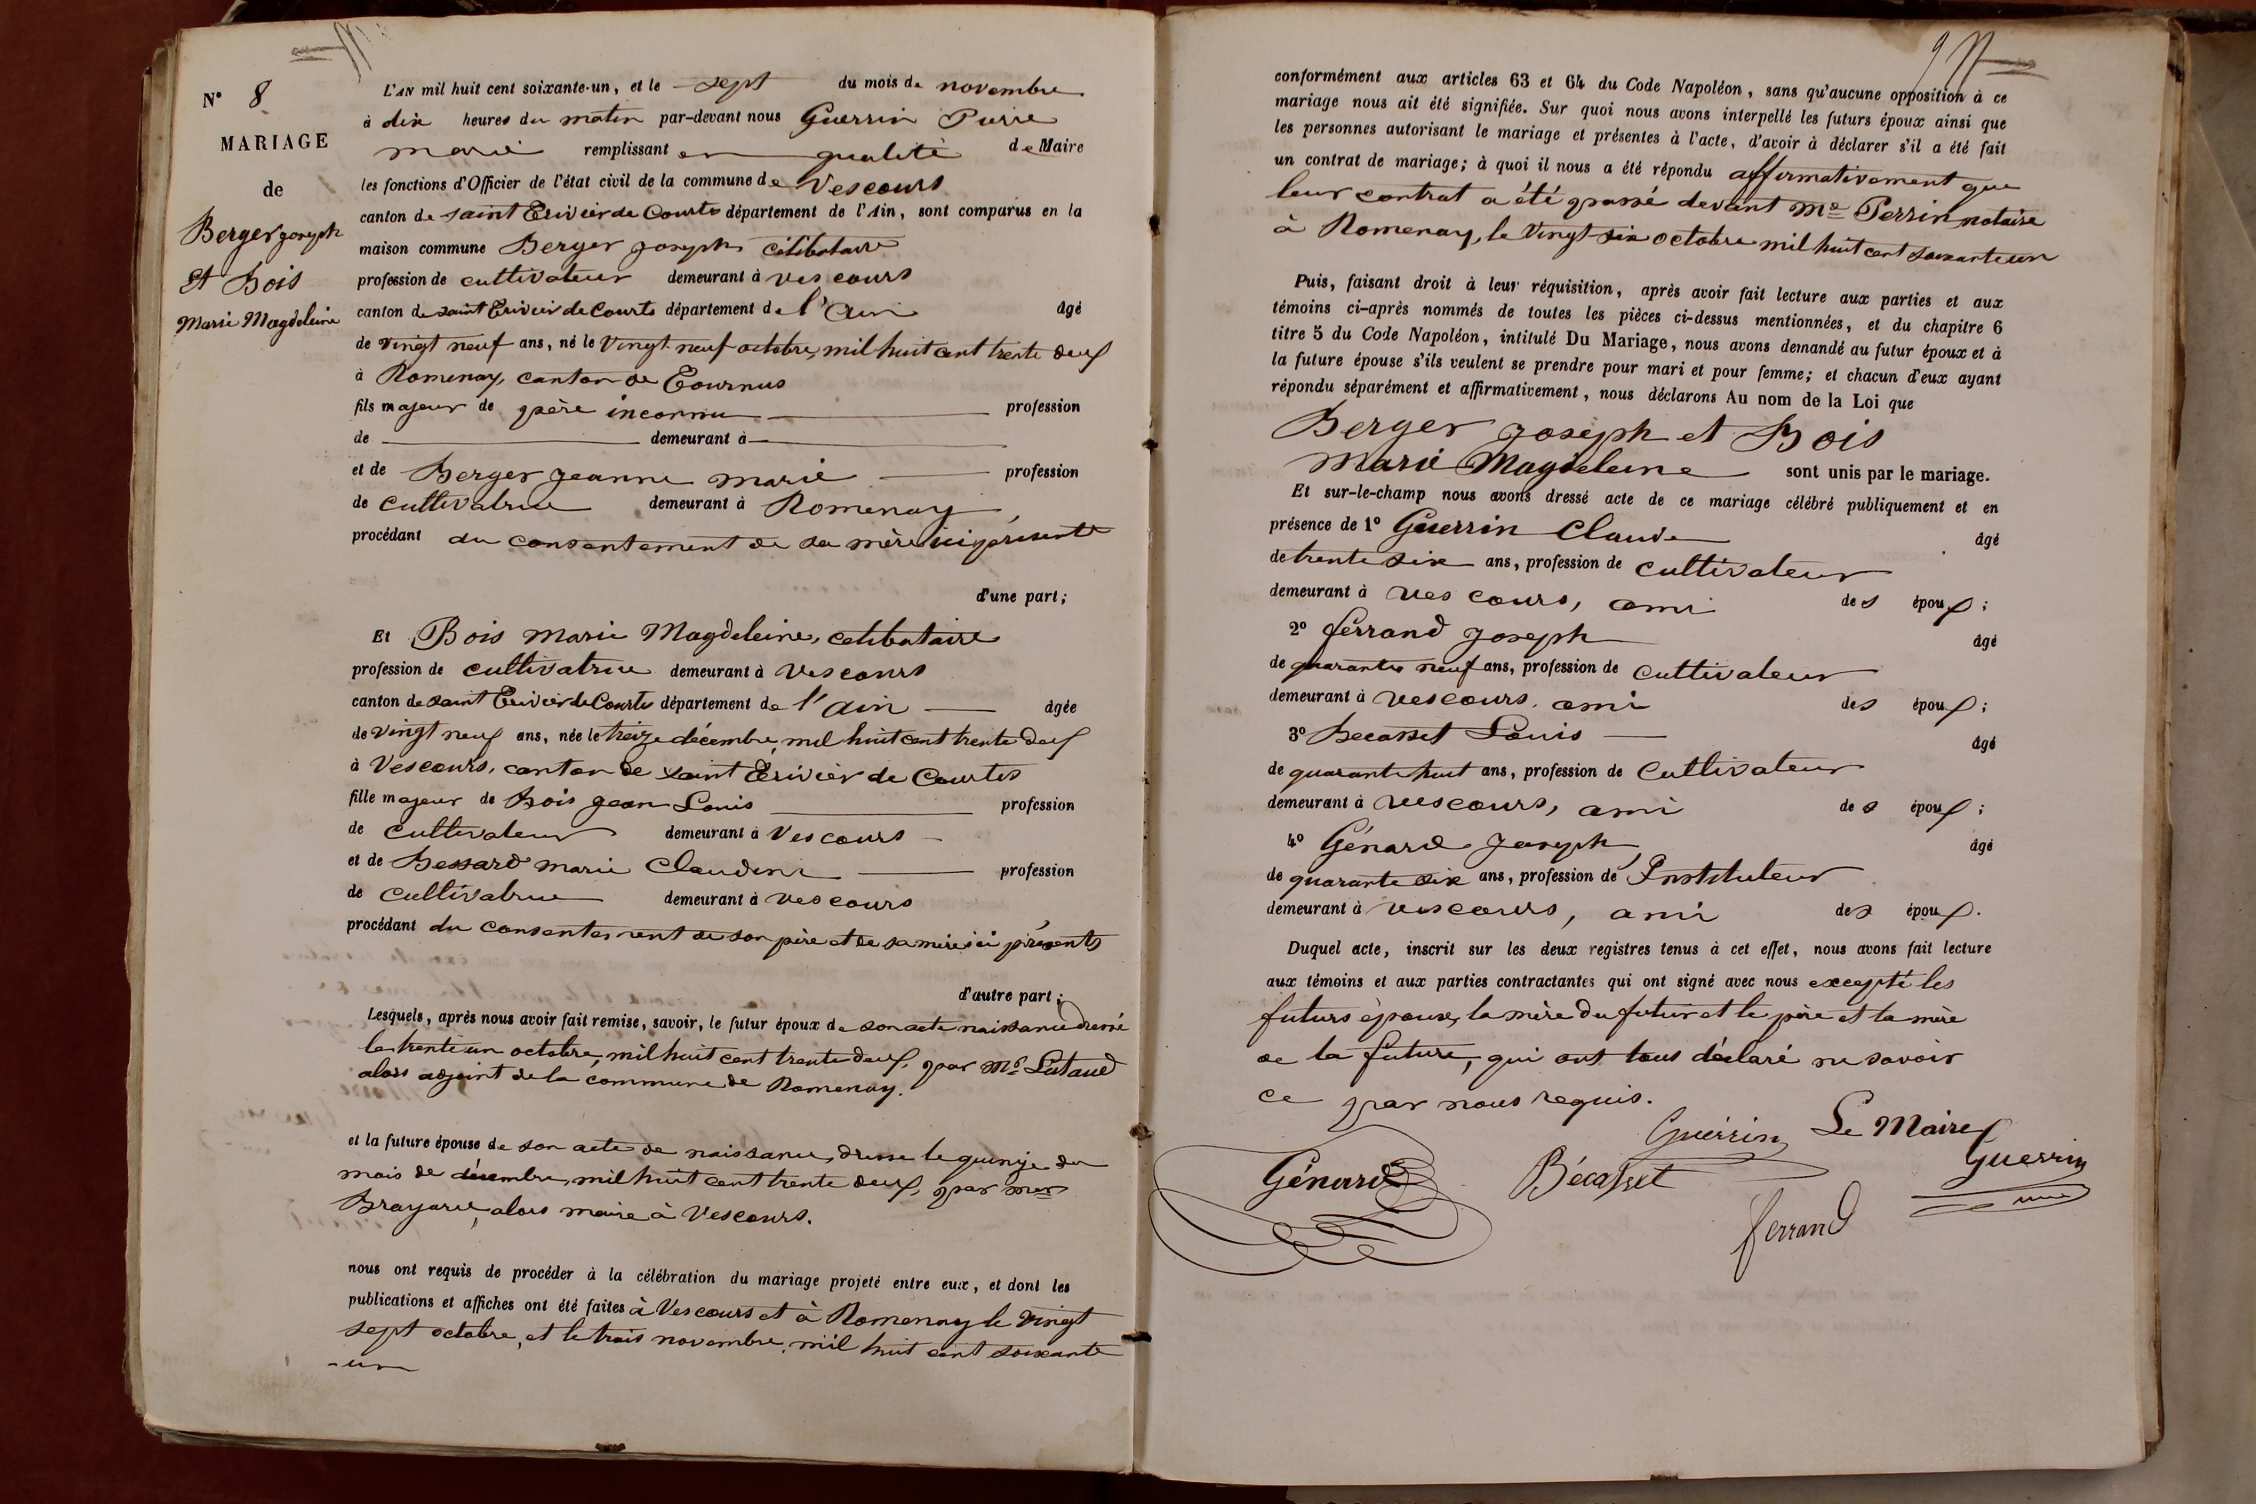 N° 8
MARIAGE
de
Berger Joseph
Et Bois
Marie Magdeleine
L'AN mil huit cent soixante-un, et le sept du mois de novembre
à dix heures du matin par-devant nous Guerrin Pierre
Marie remplissant en qualité de Maire
les fonctions d'Officier de l'état civil de la commune de Vescours
canton de saint Trivier de Courtes département de l'Ain, sont comparus en la
maison commune Berger Joseph célibataire
profession de cultivateur demeurant à Vescours
canton de saint Trivier de Courtes département de l'Ain âgé
de vingt neuf ans, né le vingt neuf octobre, mil huit cent trente deux
à Romenay, canton de Tournus
fils majeur de père inconnu profession
de demeurant à
et de Berger Jeanne Marie profession
de cultivatrice demeurant à Romenay,
procédant du consentement de sa mère ici présente
d'une part;
Et Bois Marie Magdeleine, célibataire
profession de cultivatrice demeurant à Vescours
canton de saint Trivier de Courtes département de l'Ain âgée
de vingt neuf ans, née le treize décembre, mil huit cent trente deux
à Vescours, canton de saint Trivier de Courtes
fille majeur de Bois Jean Louis profession
de cultivateur demeurant à Vescours
et de Bessard Marie Claudine profession
de cultivatrice demeurant à Vescours
procédant du consentement de son père et de sa mère ici présents
d'autre part;
Lesquels, après nous avoir fait remise, savoir, le futur époux de son acte naissance dressé
le trente un octobre, mil huit cent trente deux, par Mr Lutaud
alors adjoint de la commune de Romenay.
et la future épouse de son acte de naissance, dressé le quinze du
mois de décembre, mil huit cent trente deux, par
alors maire à Vescours.
nous ont requis de procéder à la célébration du mariage projeté entre eux, et dont les
publications et affiches ont été faites à Vescours et à Romenay le vingt
sept octobre, et le trois novembre, mil huit cent soixante
-un
conformément aux articles 63 et 64 du Code Napoléon, sans qu'aucune opposition à ce
mariage nous ait été signifiée. Sur quoi nous avons interpellé les futurs époux ainsi que
les personnes autorisant le mariage et présentes à l'acte, d'avoir à déclarer s'il a été fait
un contrat de mariage; à quoi il nous a été répondu affirmativement que
leur contrat a été passé devant Me Perrin notaire
à Romenay, le vingt six octobre mil huit cent soixante un
Puis, faisant droit à leur réquisition, après avoir fait lecture aux parties et aux
témoins ci-après nommés de toutes les pièces ci-dessus mentionnées, et du chapitre 6
titre 5 du Code Napoléon, intitulé Du Mariage, nous avons demandé au futur époux et à
la future épouse s'ils veulent se prendre pour mari et pour femme; et chacun d'eux ayant
répondu séparément et affirmativement, nous déclarons Au nom de la Loi que
Berger Joseph et Bois
Marie Magdeleine sont unis par le mariage.
Et sur-le-champ nous avons dressé acte de ce mariage célébré publiquement et en
présence de 1° Guerrin Claude âgé
de trente six ans, profession de cultivateur
demeurant à Vescours, ami des époux;
2° ferrand Joseph âgé
de quarante neuf ans, profession de cultivateur
demeurant à Vescours, ami des époux;
3° Becasset Louis âgé
de quarante huit ans, profession de cultivateur
demeurant à Vescours, ami des époux;
4° Génard Joseph, âgé
de quarante six ans, profession de Instituteur
demeurant à Vescours, ami des époux.
Duquel acte, inscrit sur les deux registres tenus à cet effet, nous avons fait lecture
aux témoins et aux parties contractantes qui ont signé avec nous excepté les
futurs époux, la mère du futur et le père et la mère
de la future, qui ont tous déclaré ne savoir
ce par nous requis.
Guerrin Le Maire
Génard Bécasset Guerrin
ferrand